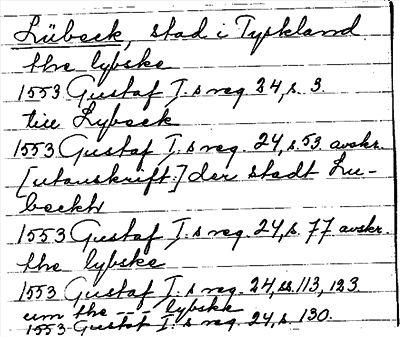 Lübeck, stad i Tyskland
the lybske
1553 Gustaf I.s reg. 24, s. 3.
till Lybeck
1553 Gustaf I.s reg. 24, s. 53 avskr.
[utanskrift:] der stadt Lu-
beckh
1553 Gustaf I.s reg. 24, s. 77 avskr.
the lybske
1553 Gustaf I.s reg. 24, ss. 113, 123
um the - - - lybske
1553 Gustaf I.s reg. 24, s. 130.